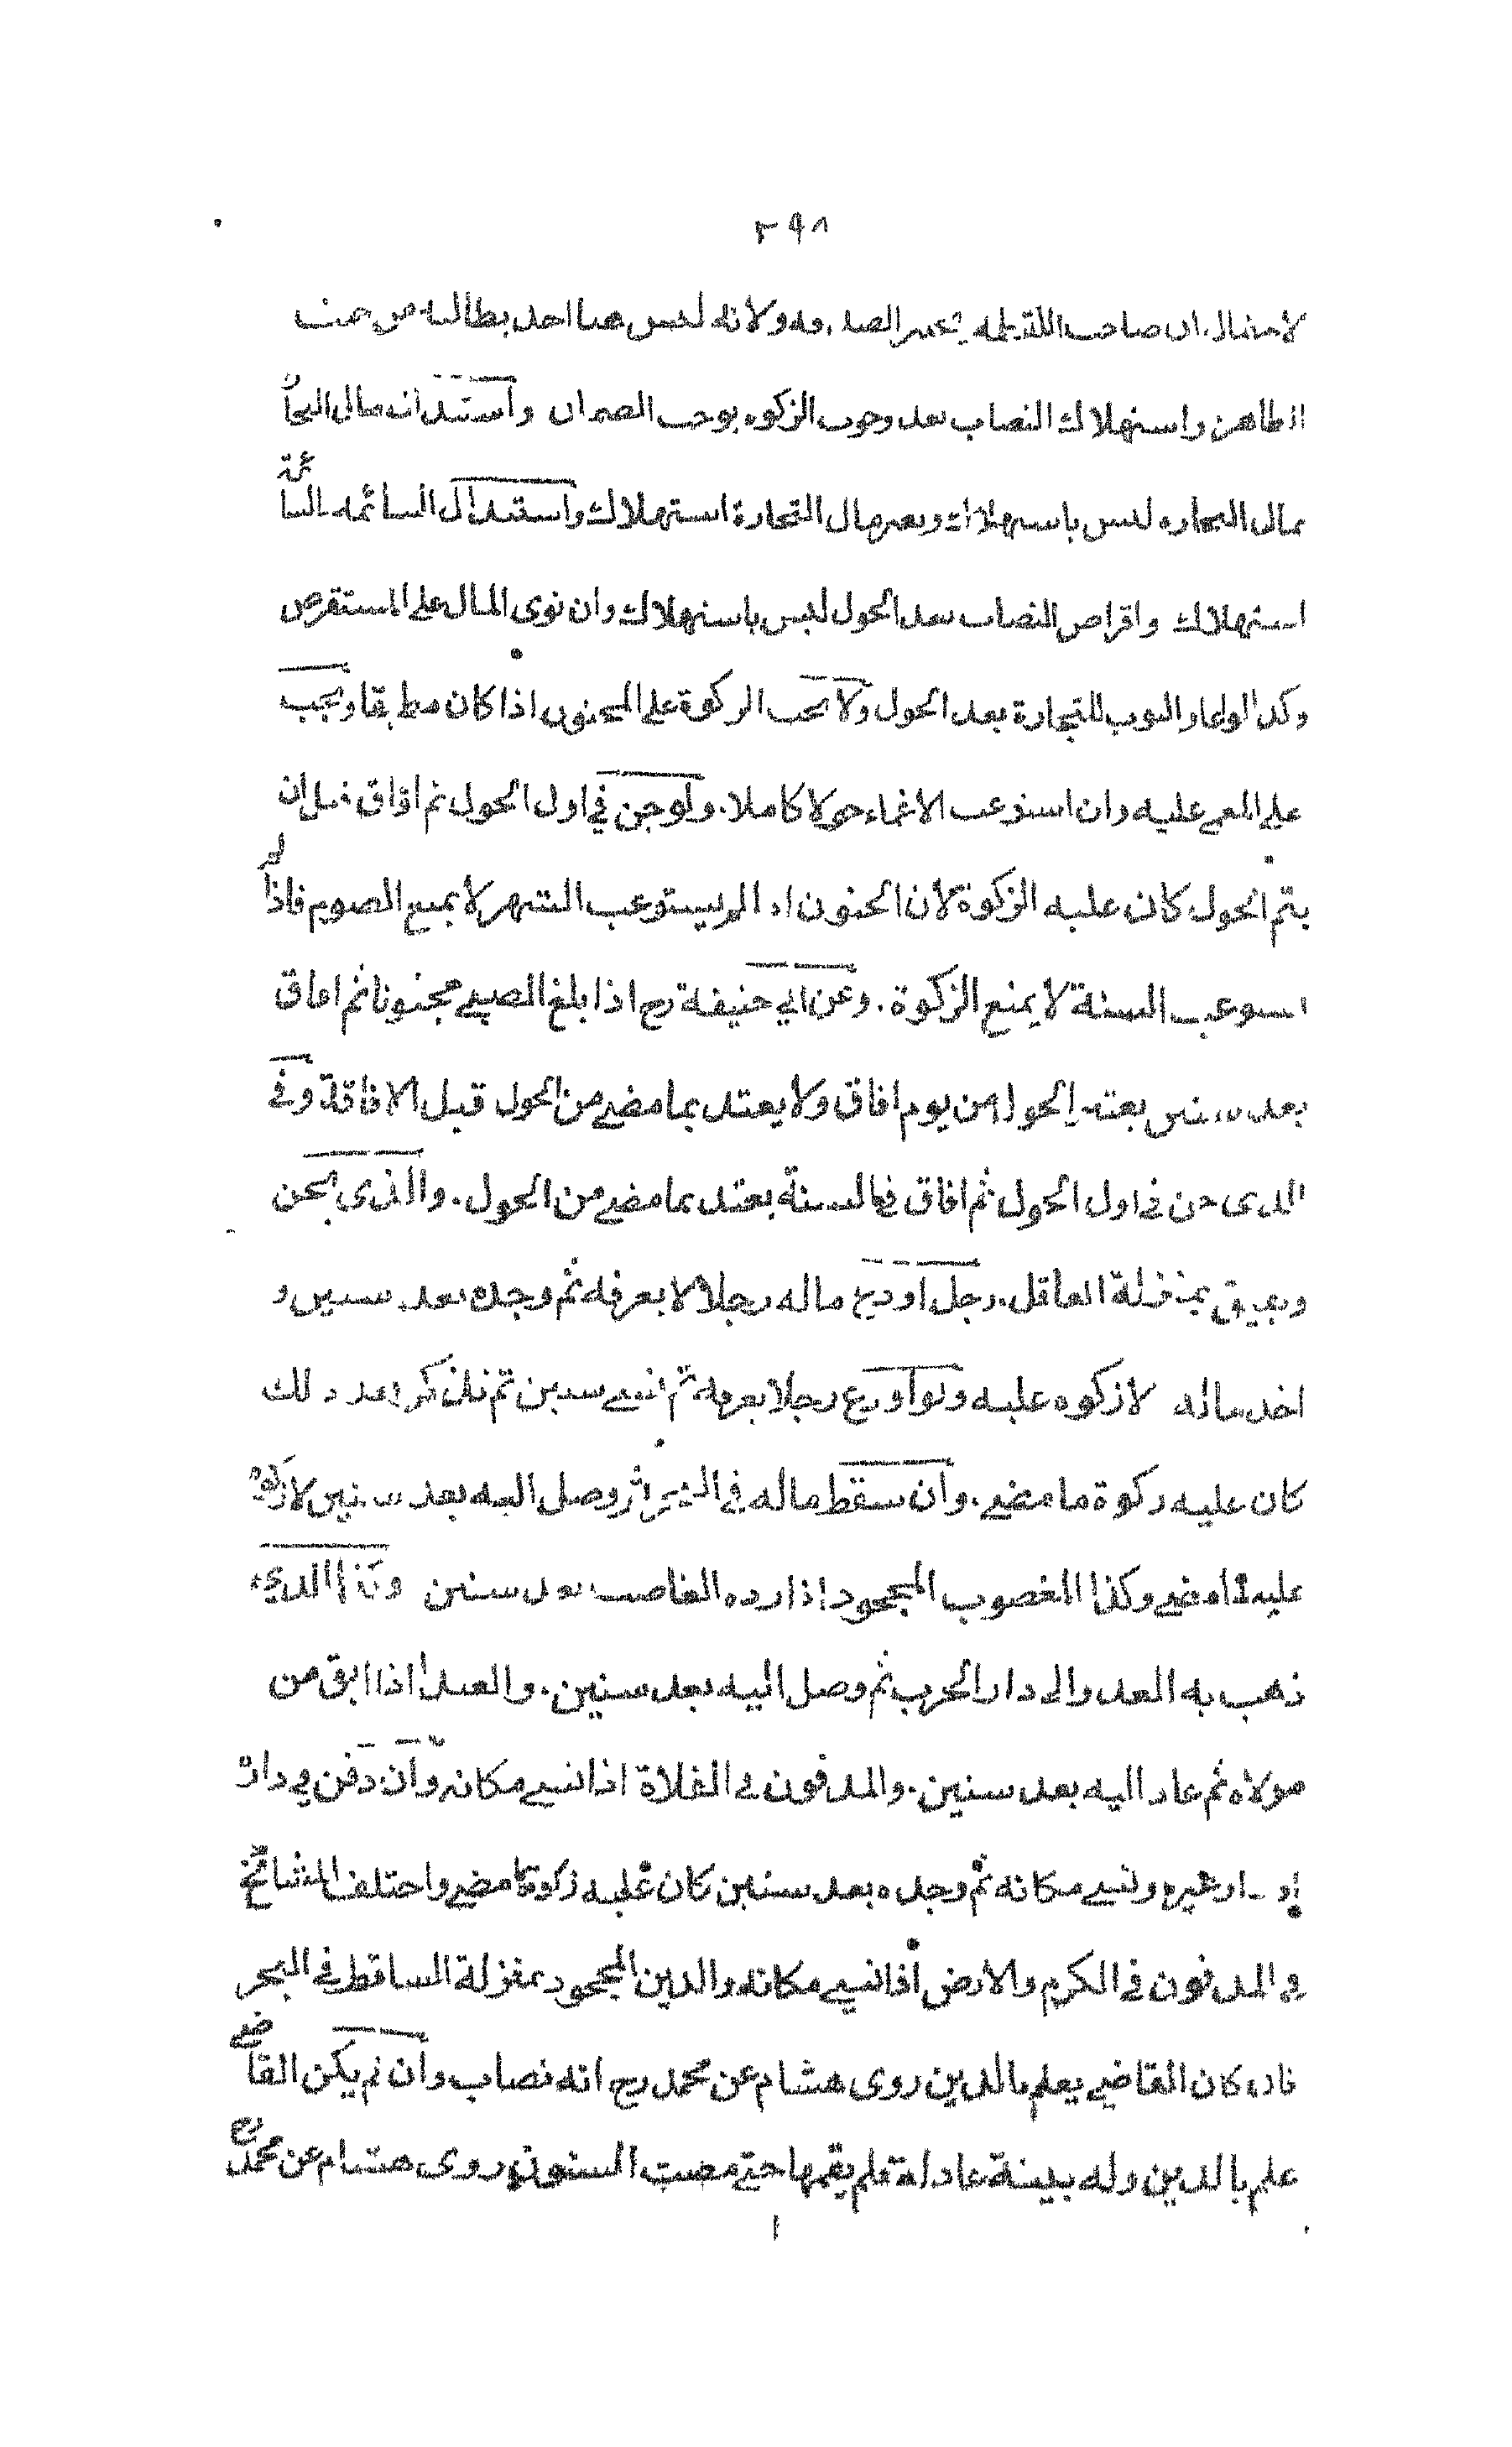 ٢٩٨
لاحتمال ان صاحب اللقطة يخير الصدقة ولانه ليس هنا احد يطالبه من حيث
الظاهر واستهلاك النصاب بعد وجوب الزكوة يوجب الضمان واستبدال مال التجارة
بمال التجارة ليس باستهلاك وبغير مال التجارة استهلاك واستبدال السائمة بالسائمة
استهلاك واقراض النصاب بعد الحول ليس باستهلاك وان نوى المال على المستقرض
وكذا لو اعار الثوب للتجارة بعد الحول ولا تجب الزكوة على المجنون اذا كان مطبقا وتجب
على المغمى عليه وان استوعب الاغماء حولا كاملا. ولو جن في اول الحول ثم افاق قبل ان
يتم الحول كان عليه الزكوة لان الجنون اذا لم يستوعب الشهر لا يمنع الصوم فاذا لم
يستوعب السنة لا يمنع الزكوة. وعن ابي حنيفة رح اذا بلغ الصبي مجنونا ثم افاق
بعد سنين يعتد الحول من يوم افاق ولا يعتد بما مضى من الحول قبل الافاقة وفي
الذى جن في اول الحول ثم افاق في السنة يعتد بما مضى من الحول. والذى يجن
ويفيق بمنزلة العاقل. رجل اودع ماله رجلا لا يعرفه ثم وجده بعد سنين و
اخذ ماله لا زكوة عليه ولو اودع رجلا يعرفه ثم نسي سنين ثم تذكر بعد ذلك
كان عليه زكوة ما مضى. وان سقط ماله في البحر ثم وصل اليه بعد سنين لا زكوة
عليه لما مضى وكذا المغصوب المجحود اذا رده الغاصب بعد سنين وكذا الذي
ذهب به العدو الى دار الحرب ثم وصل اليه بعد سنين. والعبد اذا ابق من
مولاه ثم عاد اليه بعد سنين. والمدفون في الفلاة اذا نسي مكانه وان دفن في داره
او دار غيره ونسي مكانه ثم وجده بعد سنين كان عليه زكوة ما مضى واختلف المشائخ
في المدفون في الكرم والارض اذا نسي مكانه والدين المجحود بمنزلة الساقط في البحر
فان كان القاضي يعلم بالدين روى هشام عن محمد رح انه نصاب وان لم يكن القاضي
علم بالدين وله بينة عادلة فلم يقمها حتى مضت السنون روى هشام عن محمد رح